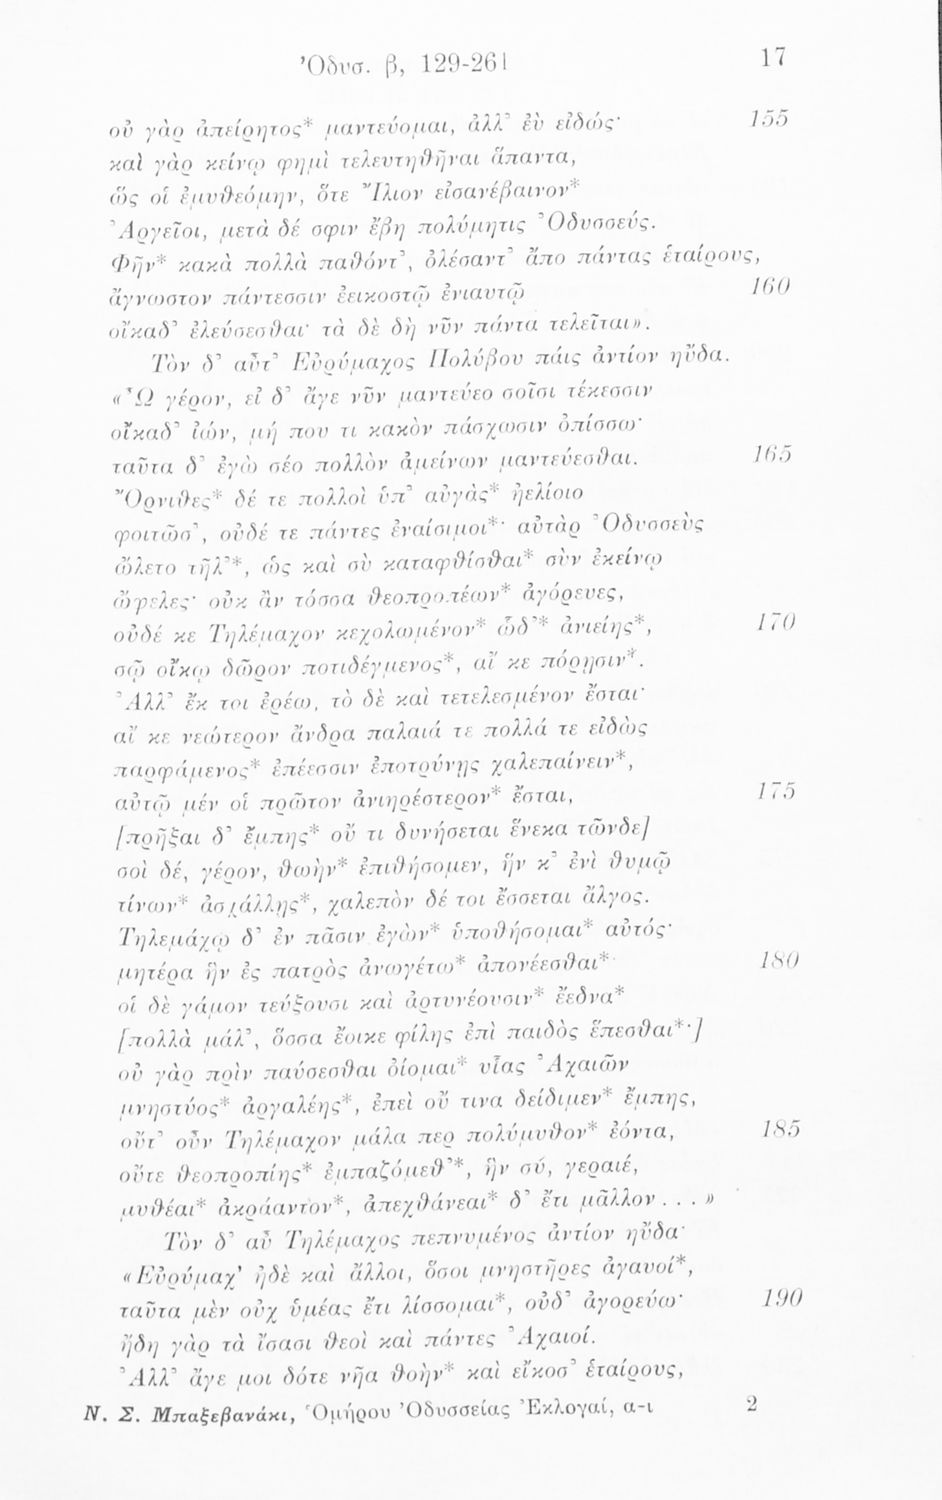 Ὀδυσ. β, 129-261 17
οὐ γὰρ ἀπείρητος* μαντεύομαι, ἀλλ' ἐὺ εἰδώς· 155
καὶ γὰρ κείνῳ φημὶ τελευτηθῆναι ἅπαντα,
ὥς οἱ ἐμυθεόμην, ὅτε Ἴλιον εἰσανέβαινον*
Ἀργεῖοι, μετὰ δέ σφιν ἔβη πολύμητις Ὀδυσσεύς.
Φῆν* κακὰ πολλὰ παθόντ', ὀλέσαντ' ἄπο πάντας ἑταίρους,
ἄγνωστον πάντεσσιν ἐεικοστῷ ἐνιαυτῷ 160
οἴκαδ' ἐλεύσεσθαι· τὰ δὲ δὴ νῦν πάντα τελεῖται».
Τὸν δ' αὖτ' Εὐρύμαχος Πολύβου πάις ἀντίον ηὔδα.
«Ὦ γέρον, εἰ δ' ἄγε νῦν μαντεύεο σοῖσι τέκεσσιν
οἴκαδ' ἰών, μή που τι κακὸν πάσχωσιν ὀπίσσω·
ταῦτα δ' ἐγὼ σέο πολλὸν ἀμείνων μαντεύεσθαι. 165
Ὄρνιθες* δέ τε πολλοὶ ὑπ' αὐγὰς* ἠελίοιο
φοιτῶσ', οὐδέ τε πάντες ἐναίσιμοι*· αὐτὰρ Ὀδυσσεὺς
ὤλετο τῆλ'*, ὡς καὶ σὺ καταφθίσθαι* σὺν ἐκείνῳ
ὤφελες· οὐκ ἂν τόσσα θεοπροπέων* ἀγόρευες,
οὐδέ κε Τηλέμαχον κεχολωμένον* ὧδ'* ἀνιείης*, 170
σῷ οἴκῳ δῶρον ποτιδέγμενος*, αἴ κε πόρῃσιν*.
Ἀλλ' ἔκ τοι ἐρέω, τὸ δὲ καὶ τετελεσμένον ἔσται·
αἴ κε νεώτερον ἄνδρα παλαιά τε πολλά τε εἰδὼς
παρφάμενος* ἐπέεσσιν ἐποτρύνῃς χαλεπαίνειν*,
αὐτῷ μέν οἱ πρῶτον ἀνιηρέστερον* ἔσται, 175
[πρῆξαι δ' ἔμπης* οὔ τι δυνήσεται ἕνεκα τῶνδε]
σοὶ δέ, γέρον, θωὴν* ἐπιθήσομεν, ἥν κ' ἐνὶ θυμῷ
τίνων* ἀσχάλλῃς*, χαλεπὸν δέ τοι ἔσσεται ἄλγος.
Τηλεμάχῳ δ' ἐν πᾶσιν ἐγὼν* ὑποθήσομαι* αὐτός·
μητέρα ἣν ἐς πατρὸς ἀνωγέτω* ἀπονέεσθαι* 180
οἱ δὲ γάμον τεύξουσι καὶ ἀρτυνέουσιν* ἔεδνα*
[πολλὰ μάλ', ὅσσα ἔοικε φίλης ἐπὶ παιδὸς ἕπεσθαι*·]
οὐ γὰρ πρὶν παύσεσθαι ὀίομαι* υἷας Ἀχαιῶν
μνηστύος* ἀργαλέης*, ἐπεὶ οὔ τινα δείδιμεν* ἔμπης,
οὔτ' οὖν Τηλέμαχον μάλα περ πολύμυθον* ἐόντα, 185
οὔτε θεοπροπίης* ἐμπαζόμεθ'*, ἣν σύ, γεραιέ,
μυθέαι* ἀκράαντον*, ἀπεχθάνεαι* δ' ἔτι μᾶλλον . . . »
Τὸν δ' αὖ Τηλέμαχος πεπνυμένος ἀντίον ηὔδα·
«Εὐρύμαχ' ἠδὲ καὶ ἄλλοι, ὅσοι μνηστῆρες ἀγαυοί*,
ταῦτα μὲν οὐχ ὑμέας ἔτι λίσσομαι*, οὐδ' ἀγορεύω· 190
ἤδη γὰρ τὰ ἴσασι θεοὶ καὶ πάντες Ἀχαιοί.
Ἀλλ' ἄγε μοι δότε νῆα θοὴν* καὶ εἴκοσ' ἑταίρους,
Ν. Σ. Μπαξεβανάκι, Ὁμήρου Ὀδυσσείας Ἐκλογαί, α-ι 2